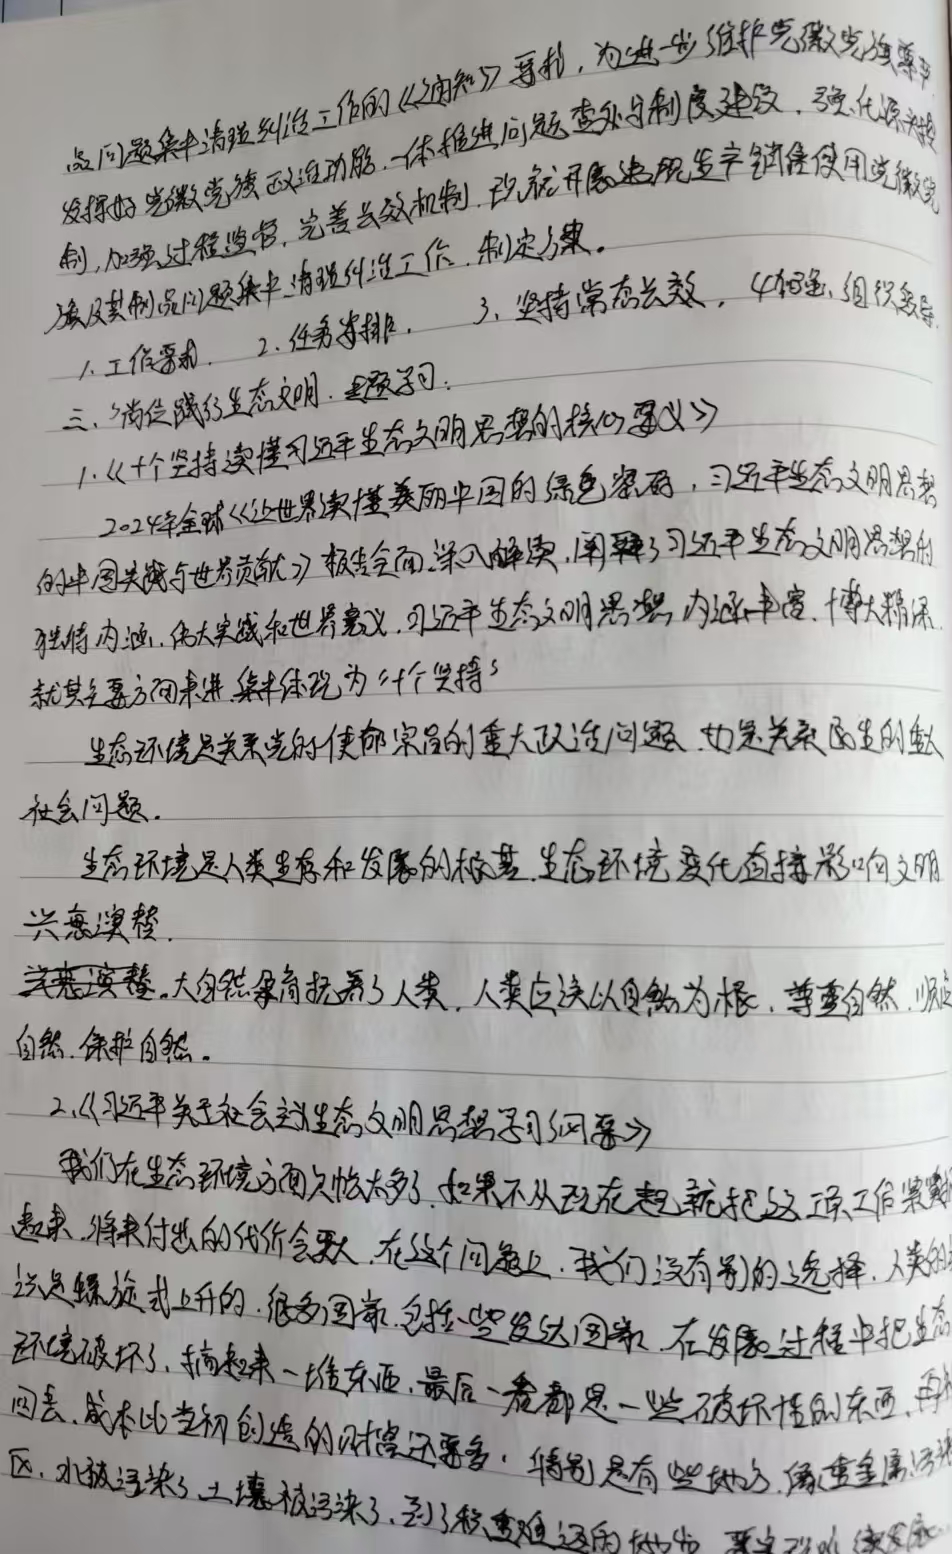 品问题集中清理纠治工作的《通知》要求,为进一步维护党徽党旗尊严
发挥好党徽党旗政治功能,一体推进问题查处与制度建设,强化源头
制,加强过程监督,完善长效机制,现就开展违规生产销售使用党徽党
旗及其制品问题集中清理纠治工作,制定方案。
1.工作要求. 2.任务安排. 3.坚持常态长效, 4.加强组织领导.
三、"岗位践行生态文明"主题学习:
1.《十个坚持读懂习近平生态文明思想的核心要义》
2024年全球《让世界读懂美丽中国的绿色密码,习近平生态文明思想
的中国实践与世界贡献》报告会面,深入解读,阐释了习近平生态文明思想的
独特内涵,伟大实践和世界意义,习近平生态文明思想内涵丰富,博大精深.
就其主要方面来讲,集中体现为"十个坚持"
生态环境是关系党的使命宗旨的重大政治问题,也是关系民生的重大
社会问题.
生态环境是人类生存和发展的根基,生态环境变化直接影响文明
兴衰演替.
兴衰演替.大自然孕育抚养了人类,人类应该以自然为根,尊重自然,顺应
自然,保护自然。
2.《习近平关于社会主义生态文明思想学习纲要》
我们在生态环境方面欠帐太多了,如果不从现在起就把这项工作紧紧抓
起来,将来付出的代价会更大,在这个问题上,我们没有别的选择,人类的认
识是螺旋式上升的,很多国家,包括一些发达国家,在发展过程中把生态
环境破坏了,搞起来一堆东西,最后一看都是一些破坏性的东西,再补
回去,成本比当初创造的财富还要多,特别是有些地方,像重金属污染
区,水被污染了,土壤被污染了,到了积重难返的地步